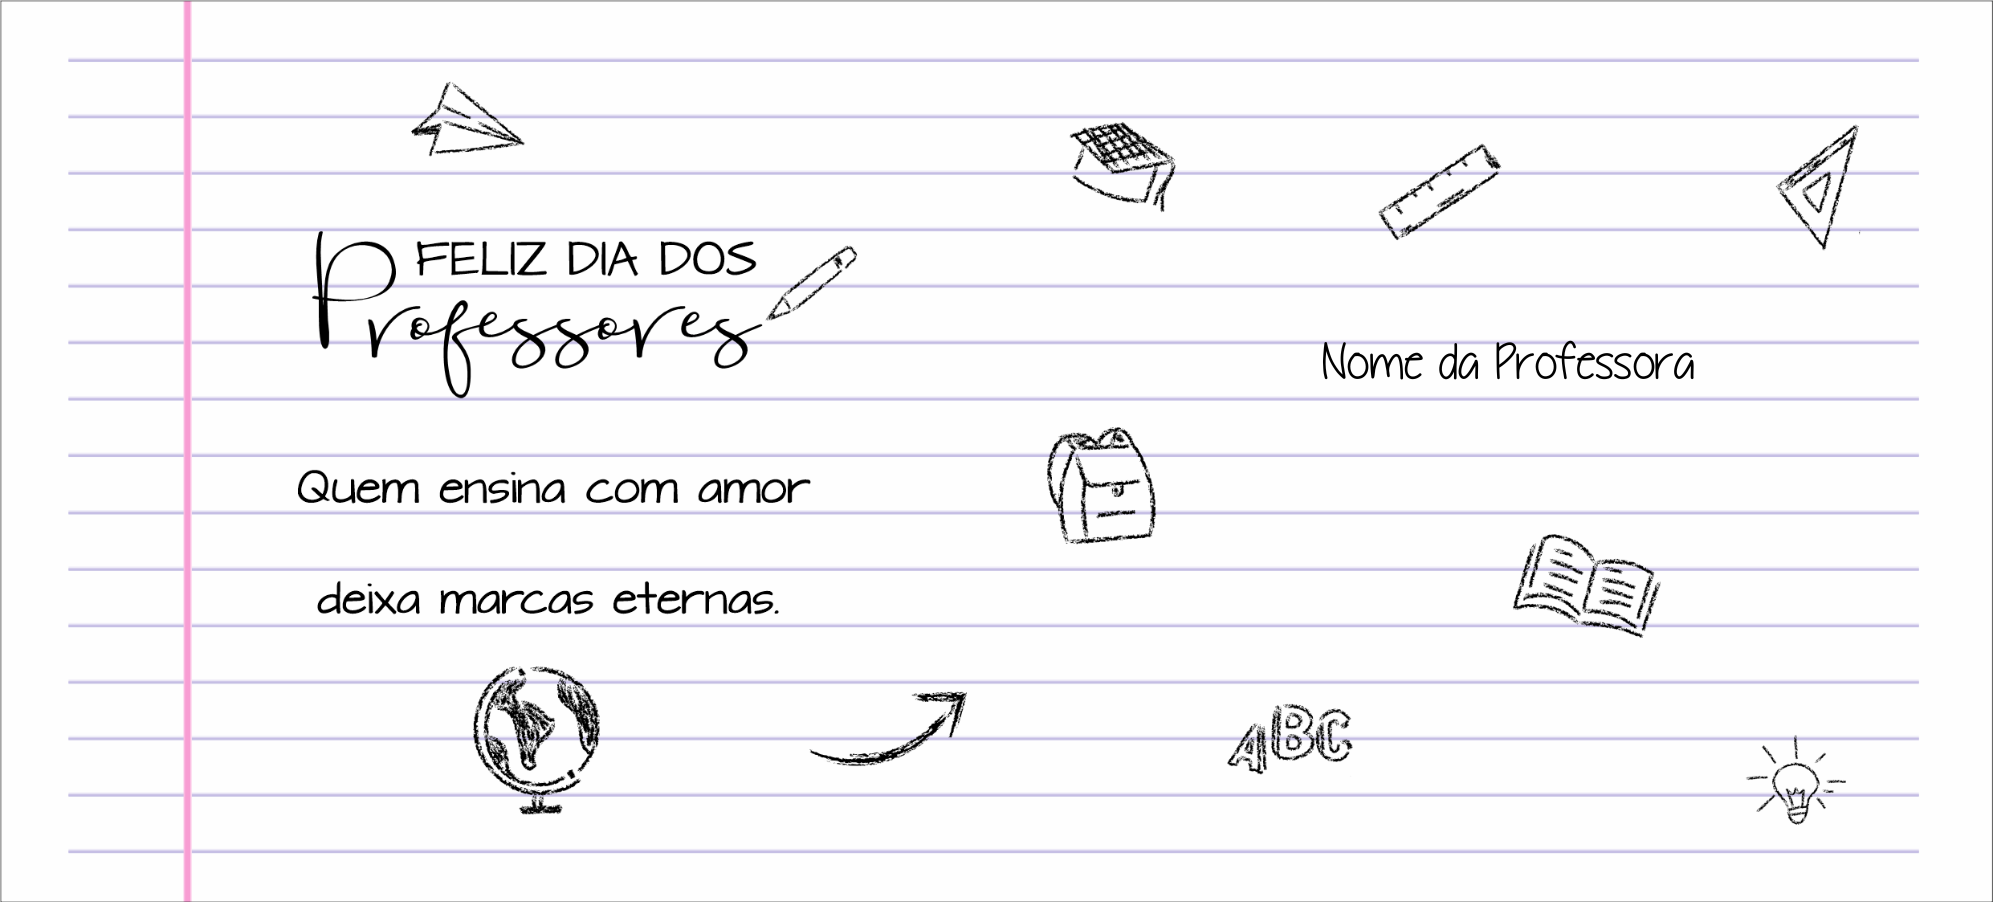 FELIZ DIA DOS
Professores
Nome da Professora
Quem ensina com amor
deixa marcas eternas.
ABC